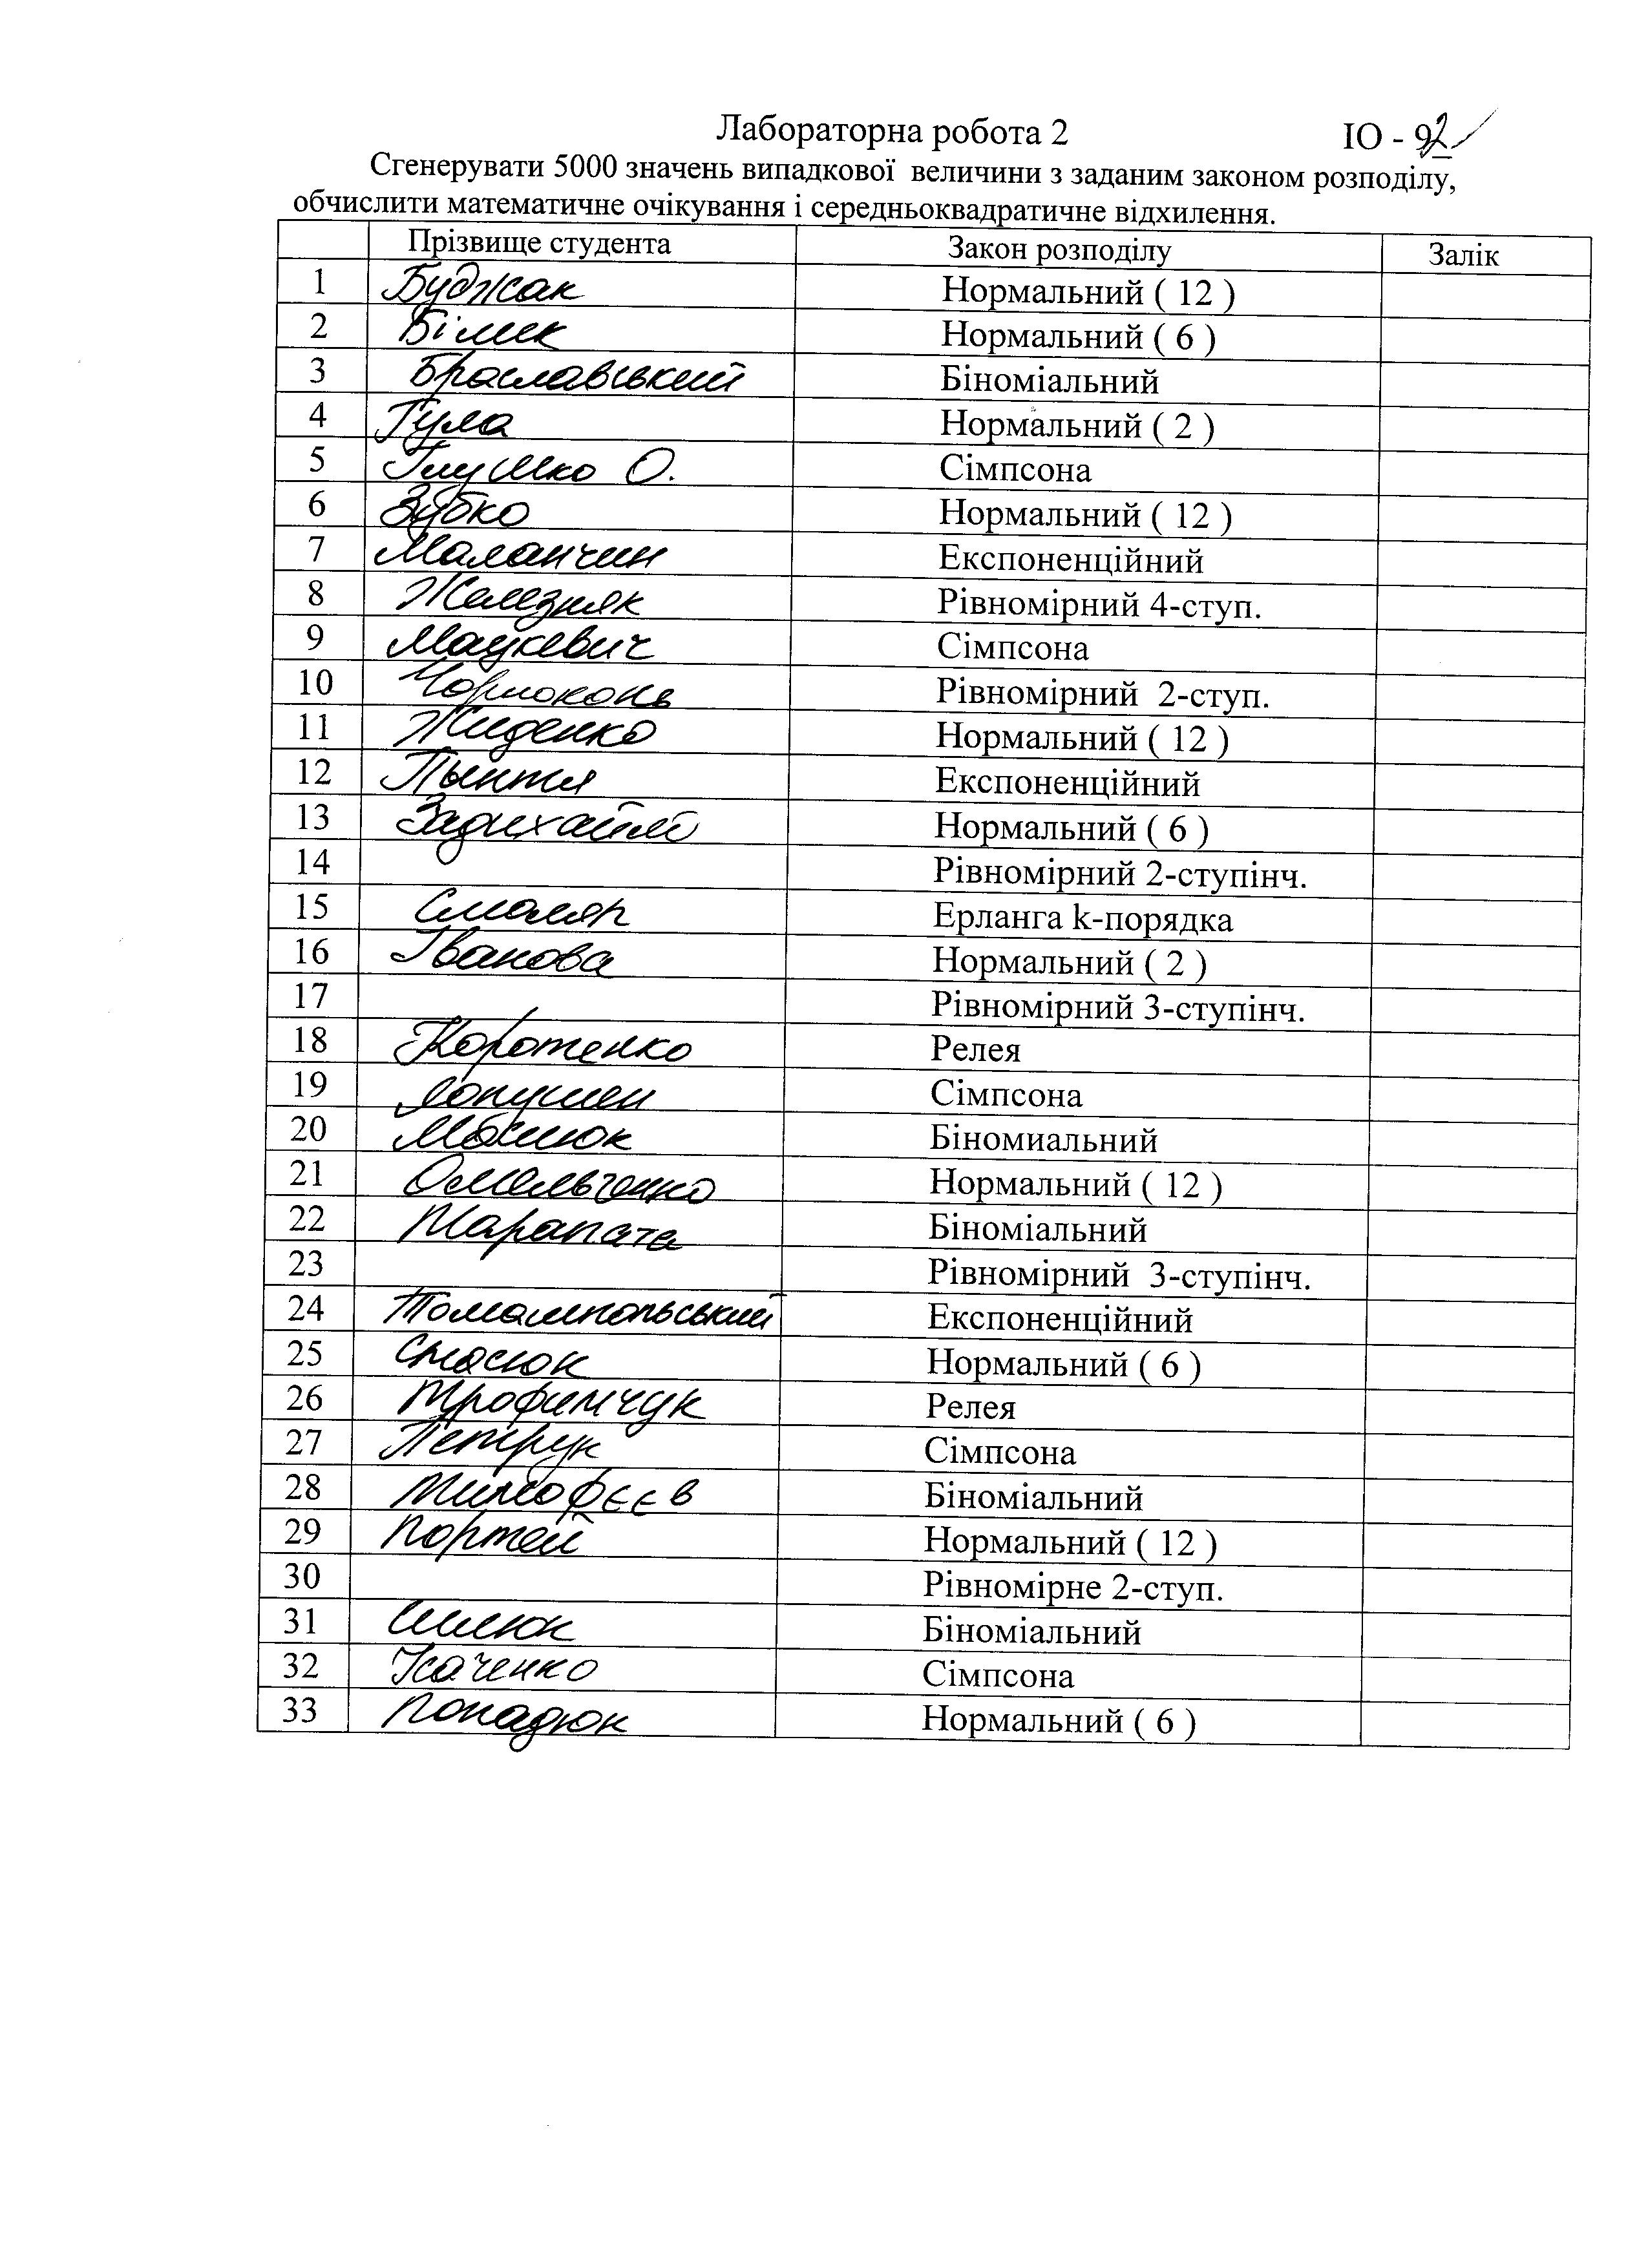 Лабораторна робота 2 ІО - 92
Сгенерувати 5000 значень випадкової величини з заданим законом розподілу,
обчислити математичне очікування і середньоквадратичне відхилення.
Прізвище студента Закон розподілу Залік
1 Буджак Нормальний ( 12 )
2 Нормальний ( 6 )
3 Браславський Біноміальний
4 Гула Нормальний ( 2 )
5 Глушко О. Сімпсона
6 Зубко Нормальний ( 12 )
7 Маланчин Експоненційний
8 Железняк Рівномірний 4-ступ.
9 Мацкевич Сімпсона
10 Чорноконь Рівномірний 2-ступ.
11 Жиденко Нормальний ( 12 )
12 Експоненційний
13 Нормальний ( 6 )
14 Рівномірний 2-ступінч.
15 Смоляр Ерланга k-порядка
16 Іванова Нормальний ( 2 )
17 Рівномірний 3-ступінч.
18 Коротенко Релея
19 Сімпсона
20 Біномиальний
21 Омельченко Нормальний ( 12 )
22 Тарапата Біноміальний
23 Рівномірний 3-ступінч.
24 Томашпольський Експоненційний
25 Стасюк Нормальний ( 6 )
26 Трофимчук Релея
27 Петрук Сімпсона
28 Тимофєєв Біноміальний
29 Портей Нормальний ( 12 )
30 Рівномірне 2-ступ.
31 Біноміальний
32 Усаченко Сімпсона
33 Попадюк Нормальний ( 6 )